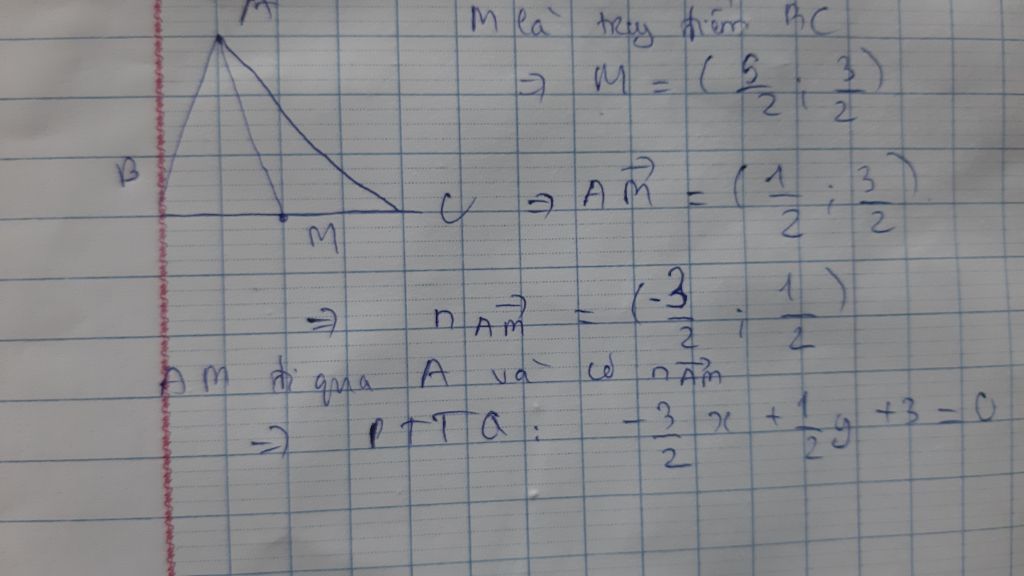 A
M là trug điểm BC
⇒ M = (5/2 ; 3/2)
B
C ⇒ AM⃗ = (1/2 ; 3/2)
M
⇒ n AM⃗ = (-3/2 ; 1/2)
AM đi qua A và có n AM⃗
⇒ PTTQ: -3/2 x + 1/2 y + 3 = 0